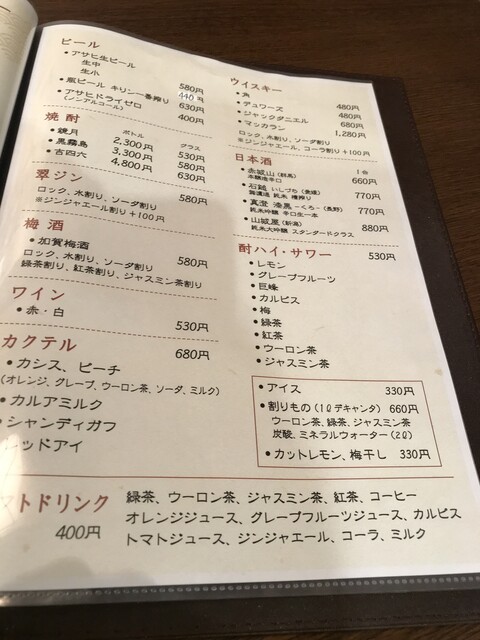 ビール
・アサヒ生ビール
生中 580円
生小 440円
・瓶ビール キリン一番搾り 630円
・アサヒドライゼロ 400円
(ノンアルコール)
焼酎
ボトル グラス
・鏡月 2,300円 530円
・黒霧島 3,300円 580円
・吉四六 4,800円 630円
翠ジン
ロック、水割り、ソーダ割り 580円
※ジンジャエール割り+100円
梅酒
・加賀梅酒 580円
ロック、水割り、ソーダ割り
緑茶割り、紅茶割り、ジャスミン茶割り
ワイン
・赤・白 530円
カクテル 680円
・カシス、ピーチ
(オレンジ、グレープ、ウーロン茶、ソーダ、ミルク)
・カルアミルク
・シャンディガフ
レッドアイ
ウイスキー
・角 480円
・デュワーズ 480円
・ジャックダニエル 680円
・マッカラン 1,280円
ロック、水割り、ソーダ割り
※ジンジャエール、コーラ割り+100円
日本酒 1合
・赤城山(群馬) 660円
本醸造辛口
・石鎚 いしづち(愛媛) 770円
純米 槽搾り
・真澄 漆黒-くろ-(長野) 770円
純米吟醸 辛口生一本
・山城屋(新潟) 880円
純米大吟醸 スタンダードクラス
酎ハイ・サワー 530円
・レモン
・グレープフルーツ
・巨峰
・カルピス
・梅
・緑茶
・紅茶
・ウーロン茶
・ジャスミン茶
・アイス 330円
・割りもの(1ℓデキャンタ) 660円
ウーロン茶、緑茶、ジャスミン茶
炭酸、ミネラルウォーター(2ℓ)
・カットレモン、梅干し 330円
フトドリンク
400円
緑茶、ウーロン茶、ジャスミン茶、紅茶、コーヒー
オレンジジュース、グレープフルーツジュース、カルピス
トマトジュース、ジンジャエール、コーラ、ミルク